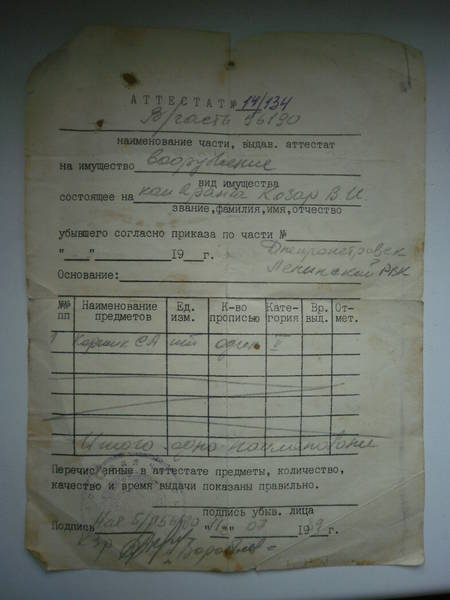 АТТЕСТАТ № 14/134
В/часть 56190
наименование части, выдав. аттестат
на имущество вооружение
вид имущества
состоящее на Козар В.И
звание, фамилия, имя, отчество
убывшего согласно приказа по части №
" " 19 г. Днепропетровск
Основание: Ленинский РВК
№№ пп Наименование предметов Ед. изм. К-во прописью Кате- гория Вр. выд. От- мет.
1 Кортик СА шт один II
Итого одно наименование
Перечисленные в аттестате предметы, количество,
качество и время выдачи показаны правильно.
подпись убыв. лица
Подпись "11" 07 1989 г.